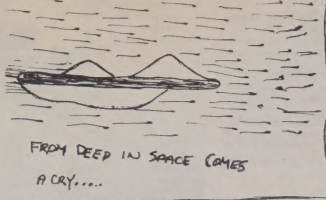 FROM DEEP IN SPACE COMES
A CRY.....